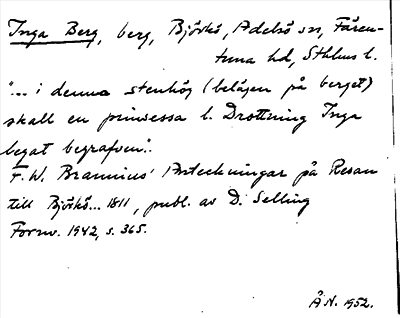 Inga Berg, berg, Björkö, Adelsö sn, Fären-
tuna hd, Sthlms l.
"... i denna stenhög (belägen på berget)
skall en prinsessa l. Drottning Inga
begat begrafven".
F. W. Brannius' Anteckningar på Resan
till Björkö... 1811, publ. av D. Selling
Fornv. 1942, s. 365.
Å N. 1952.